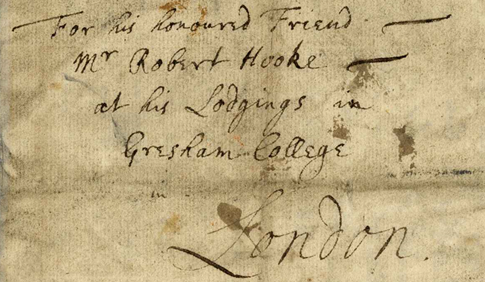 For his honoured Friend
Mr Robert Hooke
at his Lodgings in
Gresham College
in
London.